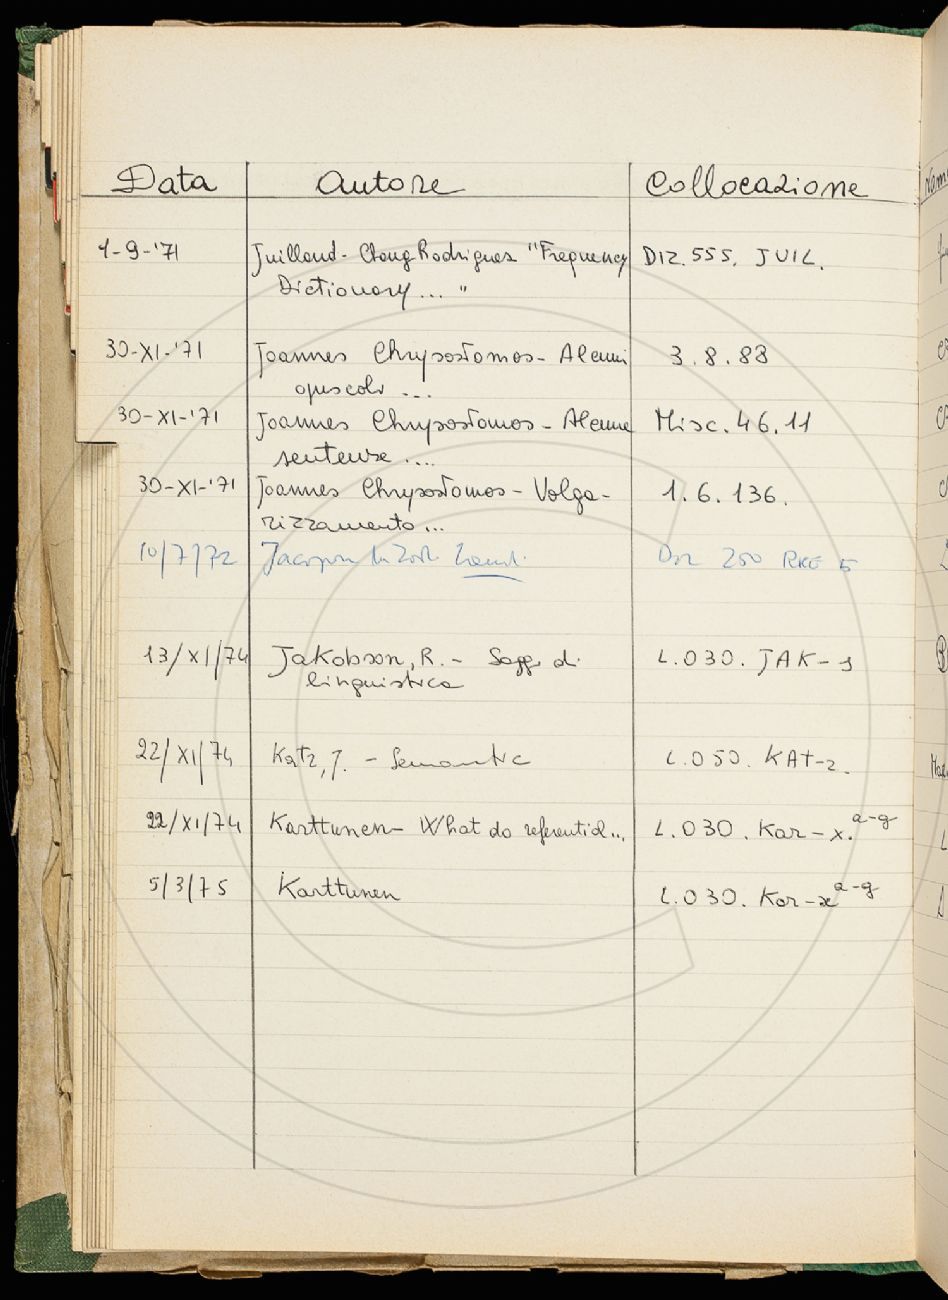 Data Autore Collocazione
1-9-'71 Juilland - Chang Rodriguez "Frequency DIZ. 555. JUIL.
Dictionary ... "
30-XI-'71 Joannes Chrysostomos - Alcuni 3.8.88
opuscoli ...
30-XI-'71 Joannes Chrysostomos - Alcune Misc. 46.11
sentenze ....
30-XI-'71 Joannes Chrysostomos - Volga- 1.6.136.
rizzamento ...
10/7/72 250 5
13/XI/74 Jakobson, R. - Saggi di L.030. JAK-1
linguistica
22/XI/74 Katz, J. - Semantic L.050. KAT-2.
22/XI/74 Karttunen - What do referential... L.030. Kar-x. a-g
5/3/75 Karttunen L.030. Kar-x a-g